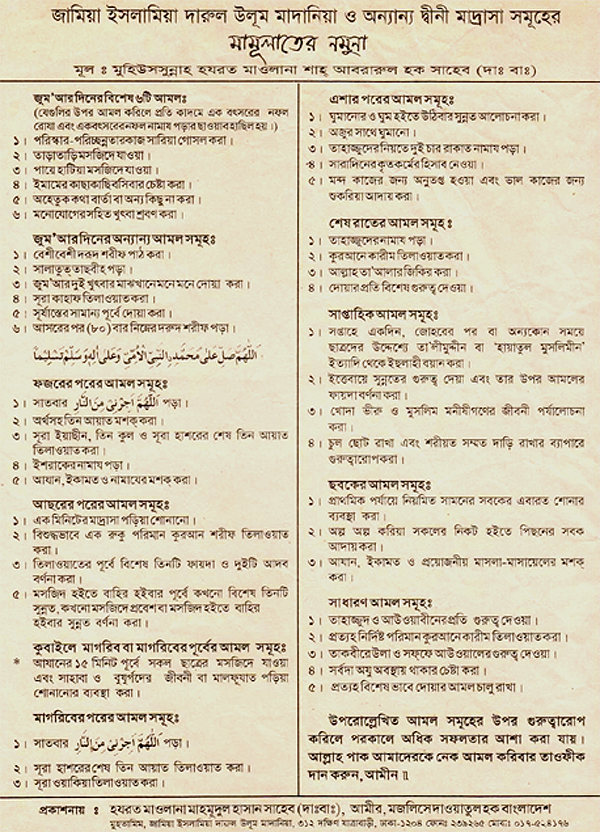 জামিয়া ইসলামিয়া দারুল উলূম মাদানিয়া ও অন্যান্য দ্বীনী মাদ্রাসা সমূহের
মামূলাতের নমুনা
মূল : মুহিউসসুন্নাহ হযরত মাওলানা শাহ্ আবরারুল হক সাহেব (দাঃ বাঃ)
জুম'আর দিনের বিশেষ ৬টি আমলঃ
(যেগুলির উপর আমল করিলে প্রতি কাদমে এক বৎসরের নফল
রোযা এবং এক বৎসরের নফল নামায পড়ার ছাওয়াব হাছিল হয়।)
১। পরিস্কার-পরিচ্ছন্নতার কাজ সারিয়া গোসল করা।
২। তাড়াতাড়ি মসজিদে যাওয়া।
৩। পায়ে হাটিয়া মসজিদে যাওয়া।
৪। ইমামের কাছাকাছি বসিবার চেষ্টা করা।
৫। অহেতুক কথা বার্তা বা অন্য কিছু না করা।
৬। মনোযোগের সহিত খুৎবা শ্রবণ করা।
জুম'আর দিনের অন্যান্য আমল সমূহঃ
১। বেশী বেশী দরূদ শরীফ পাঠ করা।
২। সালাতুত্ তাছবীহ পড়া।
৩। জুম'আর দুই খুৎবার মাঝখানে মনে মনে দোয়া করা।
৪। সূরা কাহাফ তিলাওয়াত করা।
৫। সূর্যাস্তের সামান্য পূর্বে দোয়া করা।
৬। আসরের পর (৮০) বার নিম্নের দরূদ শরীফ পড়া।
اَللّٰهُمَّ صَلِّ عَلٰى مُحَمَّدِ نِ النَّبِىِّ الْاُمِّىِّ وَعَلٰى اٰلِهٖ وَسَلِّمْ تَسْلِيْمًا
ফজরের পরের আমল সমূহঃ
১। সাতবার اَللّٰهُمَّ اَجِرْنِىْ مِنَ النَّارِ পড়া।
২। অর্থসহ তিন আয়াত মশ্ক করা।
৩। সূরা ইয়াছীন, তিন কুল ও সূরা হাশরের শেষ তিন আয়াত
তিলাওয়াত করা।
৪। ইশরাকের নামায পড়া।
৫। আযান, ইকামত ও নামাযের মশ্ক করা।
আছরের পরের আমল সমূহঃ
১। এক মিনিটের মাদ্রাসা পড়িয়া শোনানো।
২। বিশুদ্ধভাবে এক রুকু পরিমান কুরআন শরীফ তিলাওয়াত
করা।
৩। তিলাওয়াতের পূর্বে বিশেষ তিনটি ফায়দা ও দুইটি আদব
বর্ণনা করা।
৫। মসজিদ হইতে বাহির হইবার পূর্বে কখনো বিশেষ তিনটি
সুন্নত, কখনো মসজিদে প্রবেশ বা মসজিদ হইতে বাহির
হইবার সুন্নত বর্ণনা করা।
কুবাইলে মাগরিব বা মাগরিবের পূর্বের আমল সমূহঃ
* আযানের ১৫ মিনিট পূর্বে সকল ছাত্রের মসজিদে যাওয়া
এবং সাহাবা ও বুযুর্গদের জীবনী বা মালফূযাত পড়িয়া
শোনানোর ব্যবস্থা করা।
মাগরিবের পরের আমল সমূহঃ
১। সাতবার اَللّٰهُمَّ اَجِرْنِىْ مِنَ النَّارِ পড়া।
২। সূরা হাশরের শেষ তিন আয়াত তিলাওয়াত করা।
৩। সূরা ওয়াকিয়া তিলাওয়াত করা।
এশার পরের আমল সমূহঃ
১। ঘুমানোর ও ঘুম হইতে উঠিবার সুন্নত আলোচনা করা।
২। অজুর সাথে ঘুমানো।
৩। তাহাজ্জুদের নিয়তে দুই চার রাকাত নামায পড়া।
৪। সারাদিনের কৃতকর্মের হিসাব নেওয়া।
৫। মন্দ কাজের জন্য অনুতপ্ত হওয়া এবং ভাল কাজের জন্য
শুকরিয়া আদায় করা।
শেষ রাতের আমল সমূহ ঃ
১। তাহাজ্জুদের নামায পড়া।
২। কুরআনে কারীম তিলাওয়াত করা।
৩। আল্লাহ তা'আলার জিকির করা।
৪। দোয়ার প্রতি বিশেষ গুরুত্ব দেওয়া।
সাপ্তাহিক আমল সমূহঃ
১। সপ্তাহে একদিন, জোহরের পর বা অন্যকোন সময়ে
ছাত্রদের উদ্দেশ্যে তা'লীমুদ্দীন বা 'হায়াতুল মুসলিমীন'
ইত্যাদি থেকে ইছলাহী বয়ান করা।
২। ইত্তেবায়ে সুন্নতের গুরুত্ব দেয়া এবং তার উপর আমলের
ফায়দা বর্ণনা করা।
৩। খোদা ভীরু ও মুসলিম মনীষীগণের জীবনী পর্যালোচনা
করা।
৪। চুল ছোট রাখা এবং শরীয়ত সম্মত দাড়ি রাখার ব্যাপারে
গুরুত্বারোপ করা।
ছবকের আমল সমূহঃ
১। প্রাথমিক পর্যায়ে নিয়মিত সামনের সবকের এবারত শোনার
ব্যবস্থা করা।
২। অল্প অল্প করিয়া সকলের নিকট হইতে পিছনের সবক
আদায় করা।
৩। আযান, ইকামত ও প্রয়োজনীয় মাসলা-মাসায়েলের মশ্ক
করা।
সাধারণ আমল সমূহঃ
১। তাহাজ্জুদ ও আউওয়াবীনের প্রতি গুরুত্ব দেওয়া।
২। প্রত্যহ নির্দিষ্ট পরিমান কুরআনে কারীম তিলাওয়াত করা।
৩। তাকবীরে উলা ও সফ্ফে আউওয়ালের গুরুত্ব দেওয়া।
৪। সর্বদা অযু অবস্থায় থাকার চেষ্টা করা।
৫। প্রত্যহ বিশেষ ভাবে দোয়ার আমল চালু রাখা।
উপরোল্লেখিত আমল সমূহের উপর গুরুত্বারোপ
করিলে পরকালে অধিক সফলতার আশা করা যায়।
আল্লাহ পাক আমাদেরকে নেক আমল করিবার তাওফীক
দান করুন, আমীন॥
প্রকাশনায় ঃ হযরত মাওলানা মাহমূদুল হাসান সাহেব (দাঃবাঃ), আমীর, মজলিসে দাওয়াতুল হক বাংলাদেশ
মুহতামিম, জামিয়া ইসলামিয়া দারুল উলূম মাদানিয়া, ৩১২ দক্ষিণ যাত্রাবাড়ী, ঢাকা-১২০৪ ফোনঃ ২৩৯২৬৫ মোবাঃ ০১৭-৫২৪১৭৬